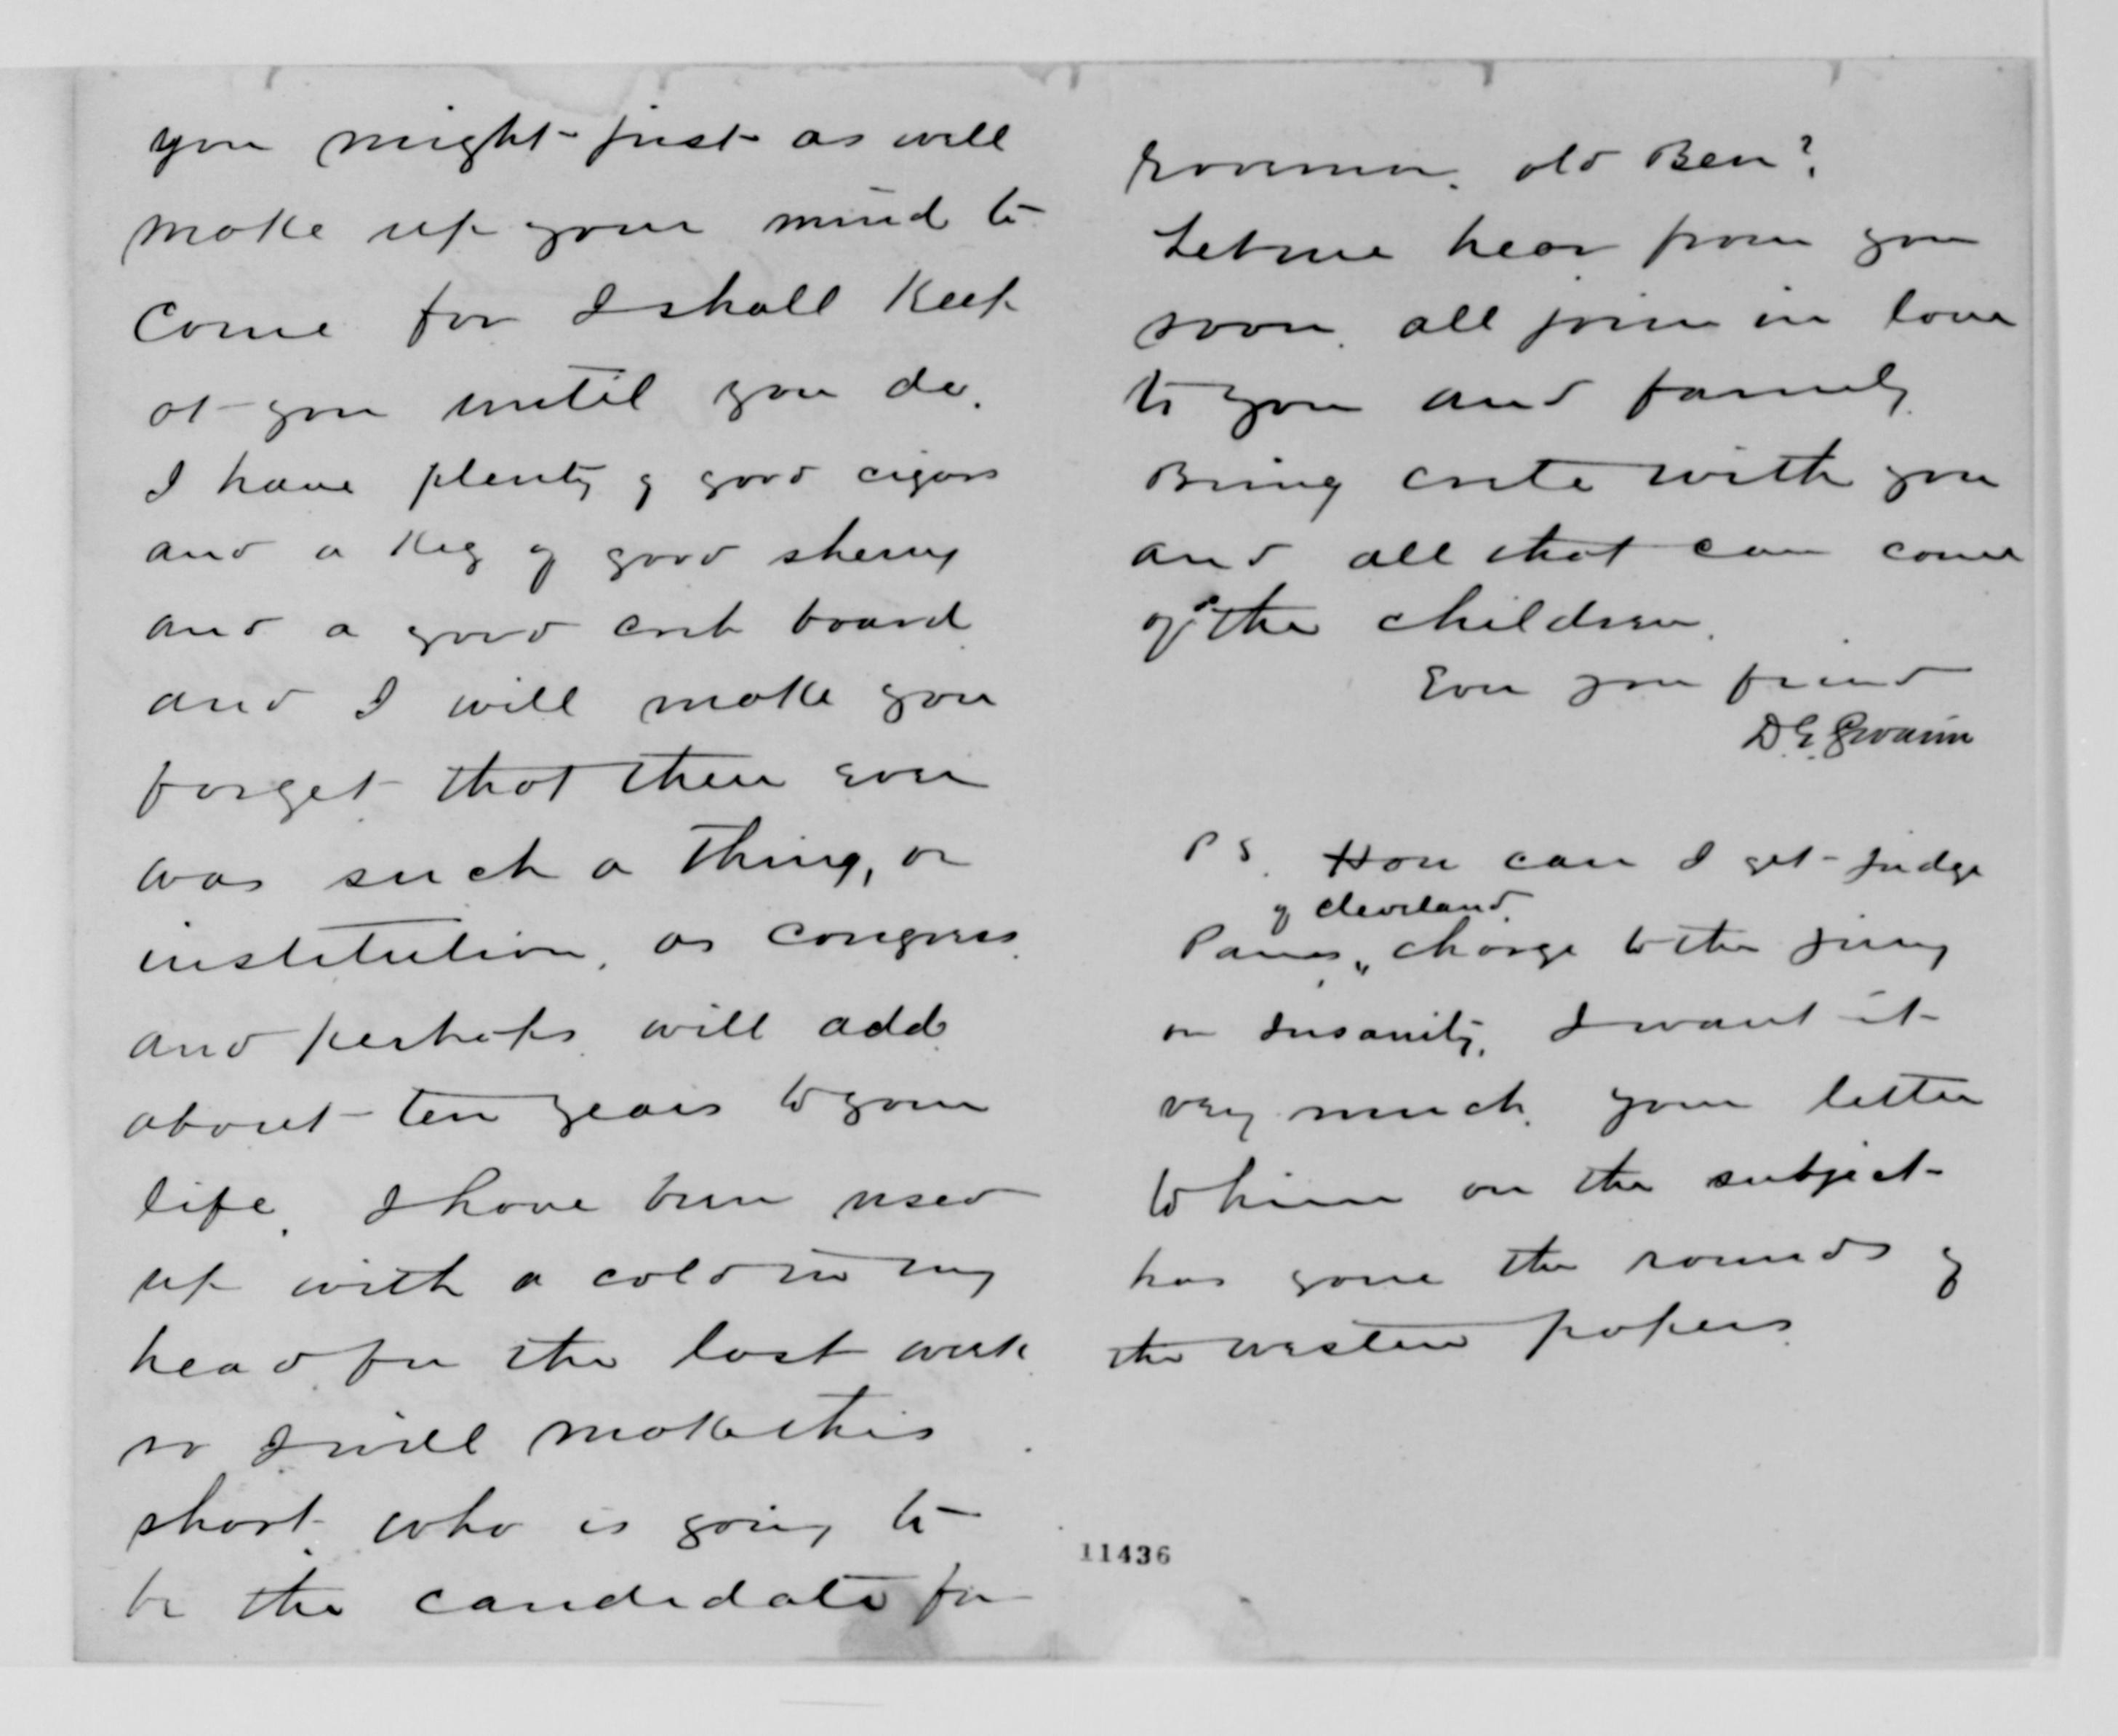 you might just as well
make up your mind to
come for I shall keep
at you until you do.
I have plenty of good cigars
and a keg of good sherry
and a good crib board
and I will make you
forget that there ever
was such a thing, or
institution, as congress.
and perhaps will add
about ten years to your
life. I have been used
up with a cold in my
head for the last week
so I will make this
short. who is going to
be the candidate for
Governor. old Ben?
Let me hear from you
soon. all join in love
to you and family.
Bring crete with you
and all that can come
of the children.
Ever your friend
D. G. Swaim
P S. How can I get Judge
of Cleveland.
Paines, charge to the jury
on Insanity. I want it
very much. your letter
to him on the subject
has gone the rounds of
the western papers.
11436